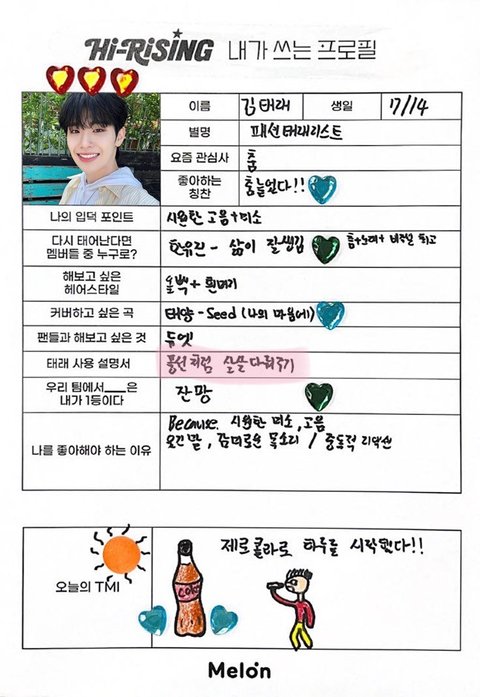 Hi-RiSING 내가 쓰는 프로필
이름 김태래 생일 7/14
별명 패션태래리스트
요즘 관심사 춤
좋아하는 칭찬 춤늘었다!!
나의 입덕 포인트 시원한 고음+미소
다시 태어난다면 멤버들 중 누구로? 한유진 - 삶이 잘생김 춤+노래+비주얼 최고
해보고 싶은 헤어스타일 올백+흰머리
커버하고 싶은 곡 태양-Seed (나의 마음에)
팬들과 해보고 싶은 것 듀엣
태래 사용 설명서 풍선처럼 살살 다뤄주기
우리 팀에서 ___은 내가 1등이다 잔망
나를 좋아해야 하는 이유 Because. 시원한 미소, 고음
목소리 / 중독적 리액션
오늘의 TMI 제로콜라로 하루를 시작했다!!
COKE
Melon